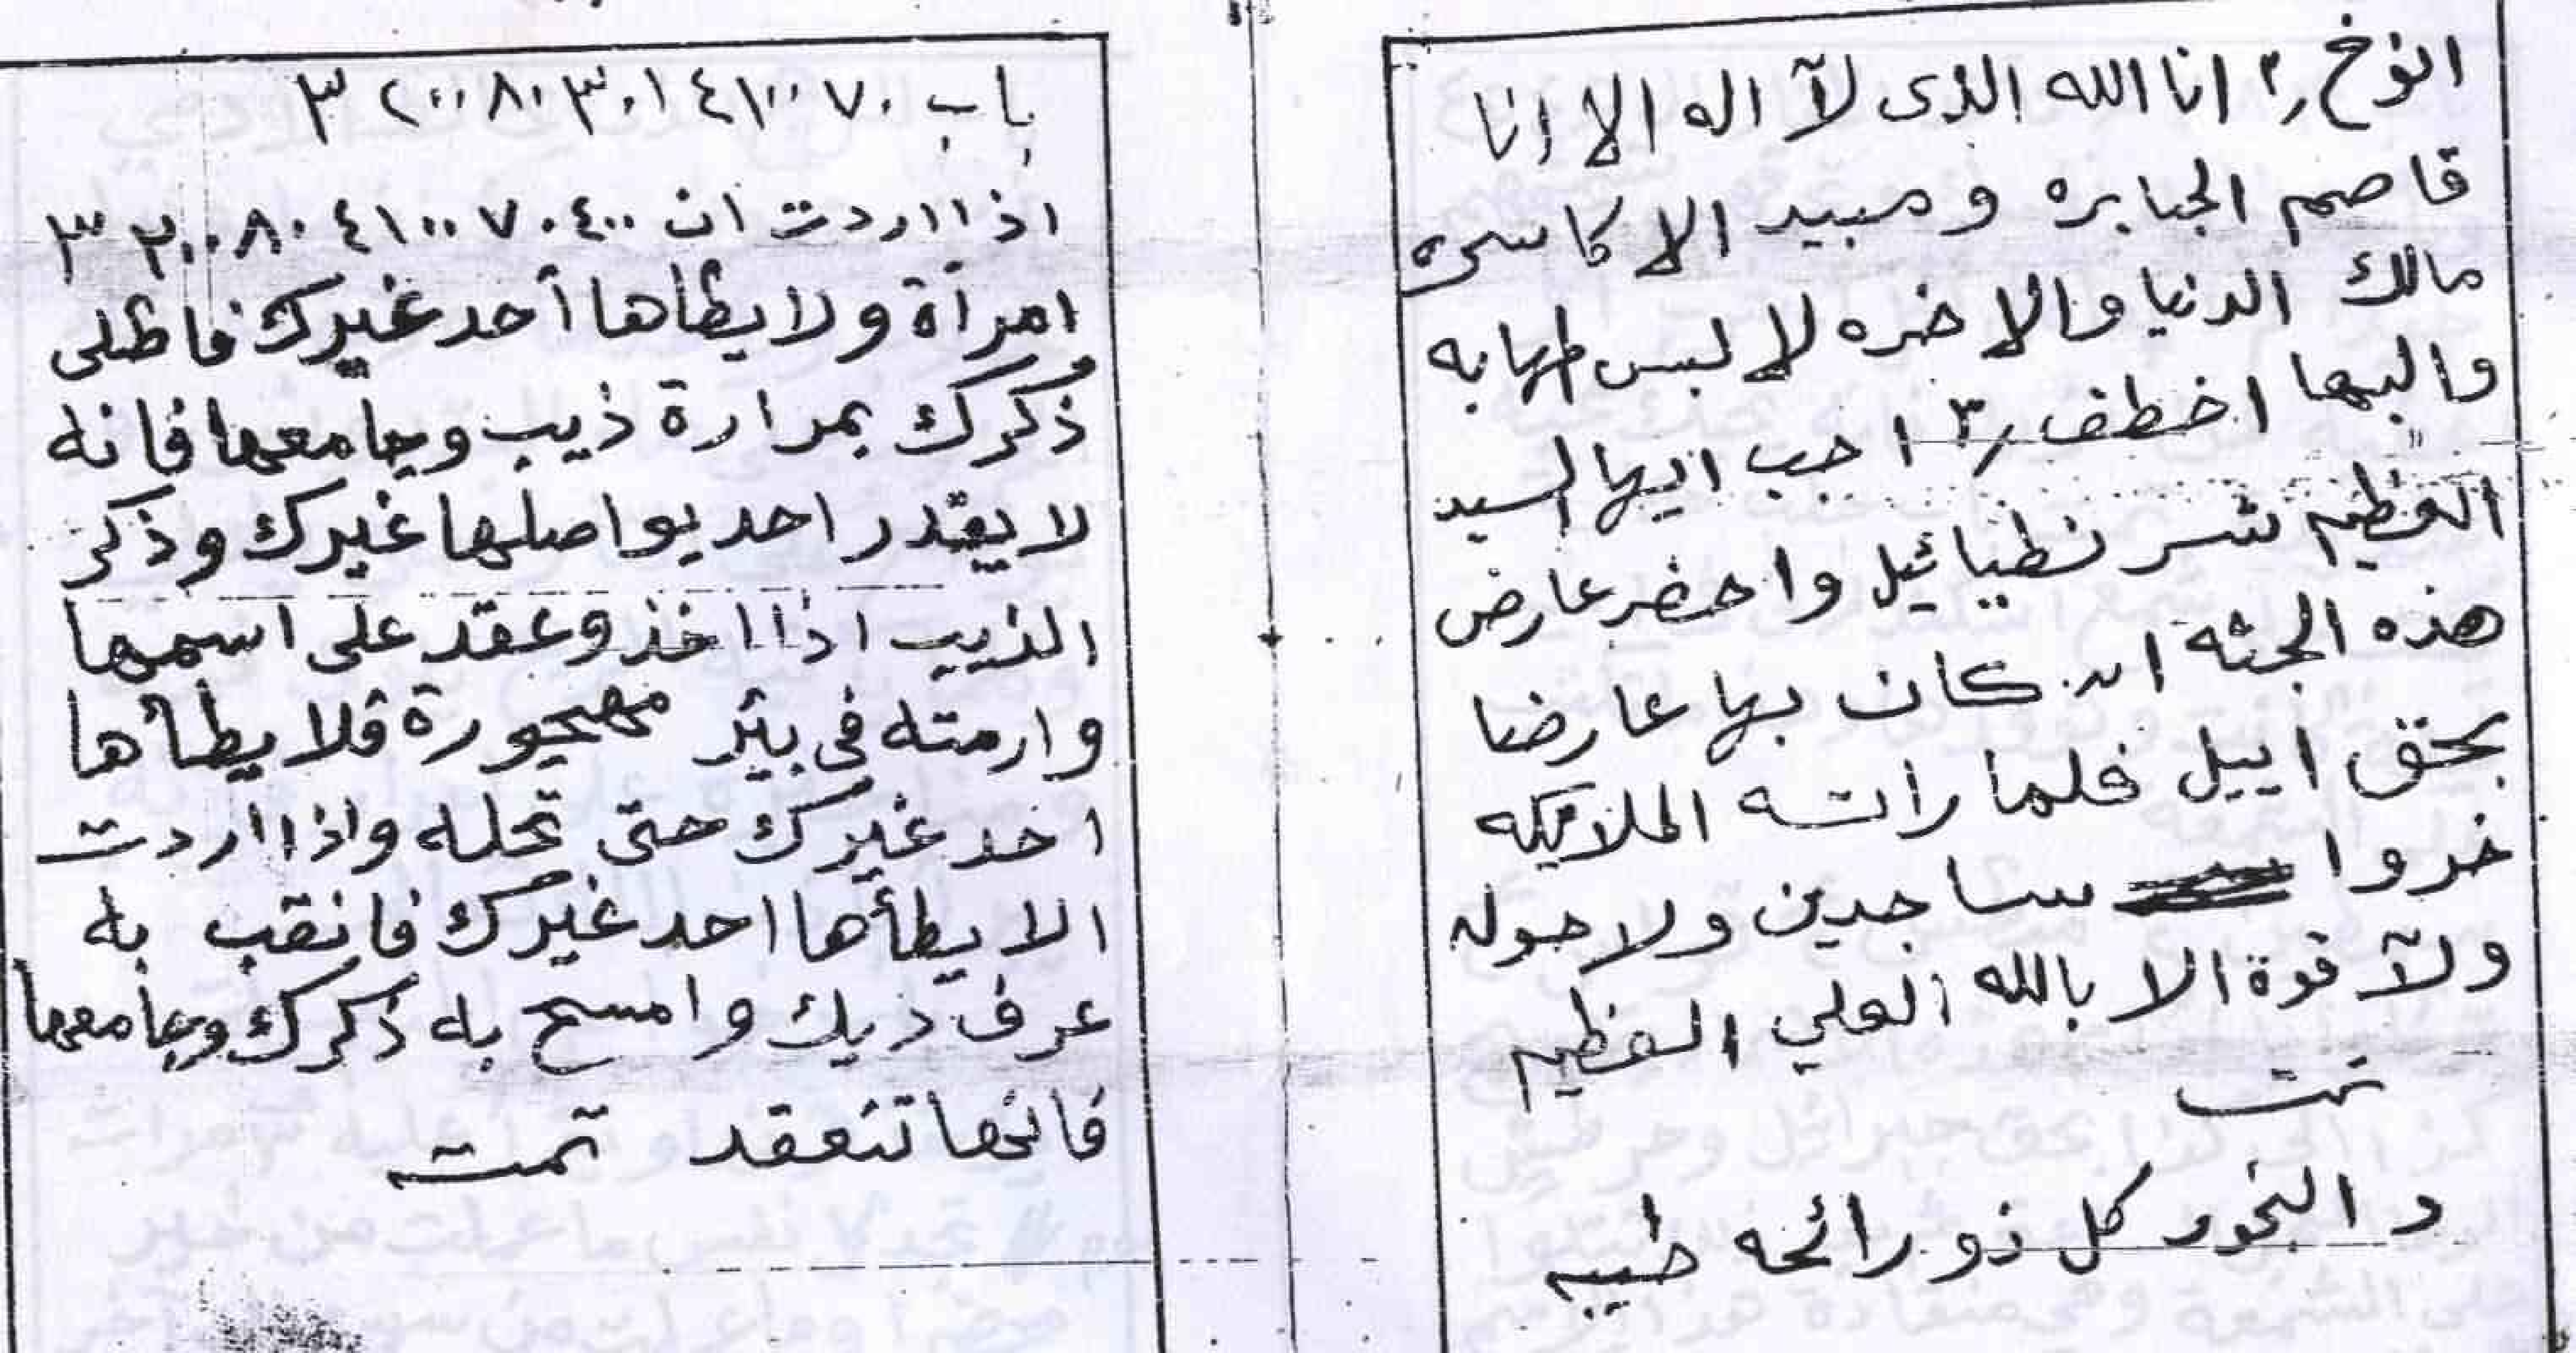 انوخ ٣ انا الله الذى لآ اله الا انا
قاصم الجبابره ومبيد الاكاسره
مالك الدنيا والاخره لا لبس
والبها اخطف ٣ اجب ايها السيد
العظيم شرنطيائيل واحضر عارض
هذه الجثه ان كان بها عارضا
بحق اييل فلما راته الملائيكه
خروا ساجدين ولا حول
ولآ قوة الا بالله العلي العظيم
تمت
د البخور كل ذو رائحه طيبه
باب ٧٠ ١٠٠ ٤ ١ ٣٠ ٨٠ ٢٠٠ ٣
اذا اردت ان ٤٠٠ ٧٠ ١٠٠ ٤ ٨٠ ٢٠٠ ٣
امرآة ولا يطأها أحد غيرك فاطلى
ذُكرك بمرارة ذيب وجامعها فانه
لا يقدر احد يواصلها غيرك وذكر
الذيب اذا اخذ وعقد على اسمها
وارمته في بئر مهجورة فلا يطأها
احد غيرك حتى تحله واذا اردت
الا يطأها احد غيرك فانقب به
عرف ديك وامسح به ذكرك وجامعها
فانها تنعقد تمت